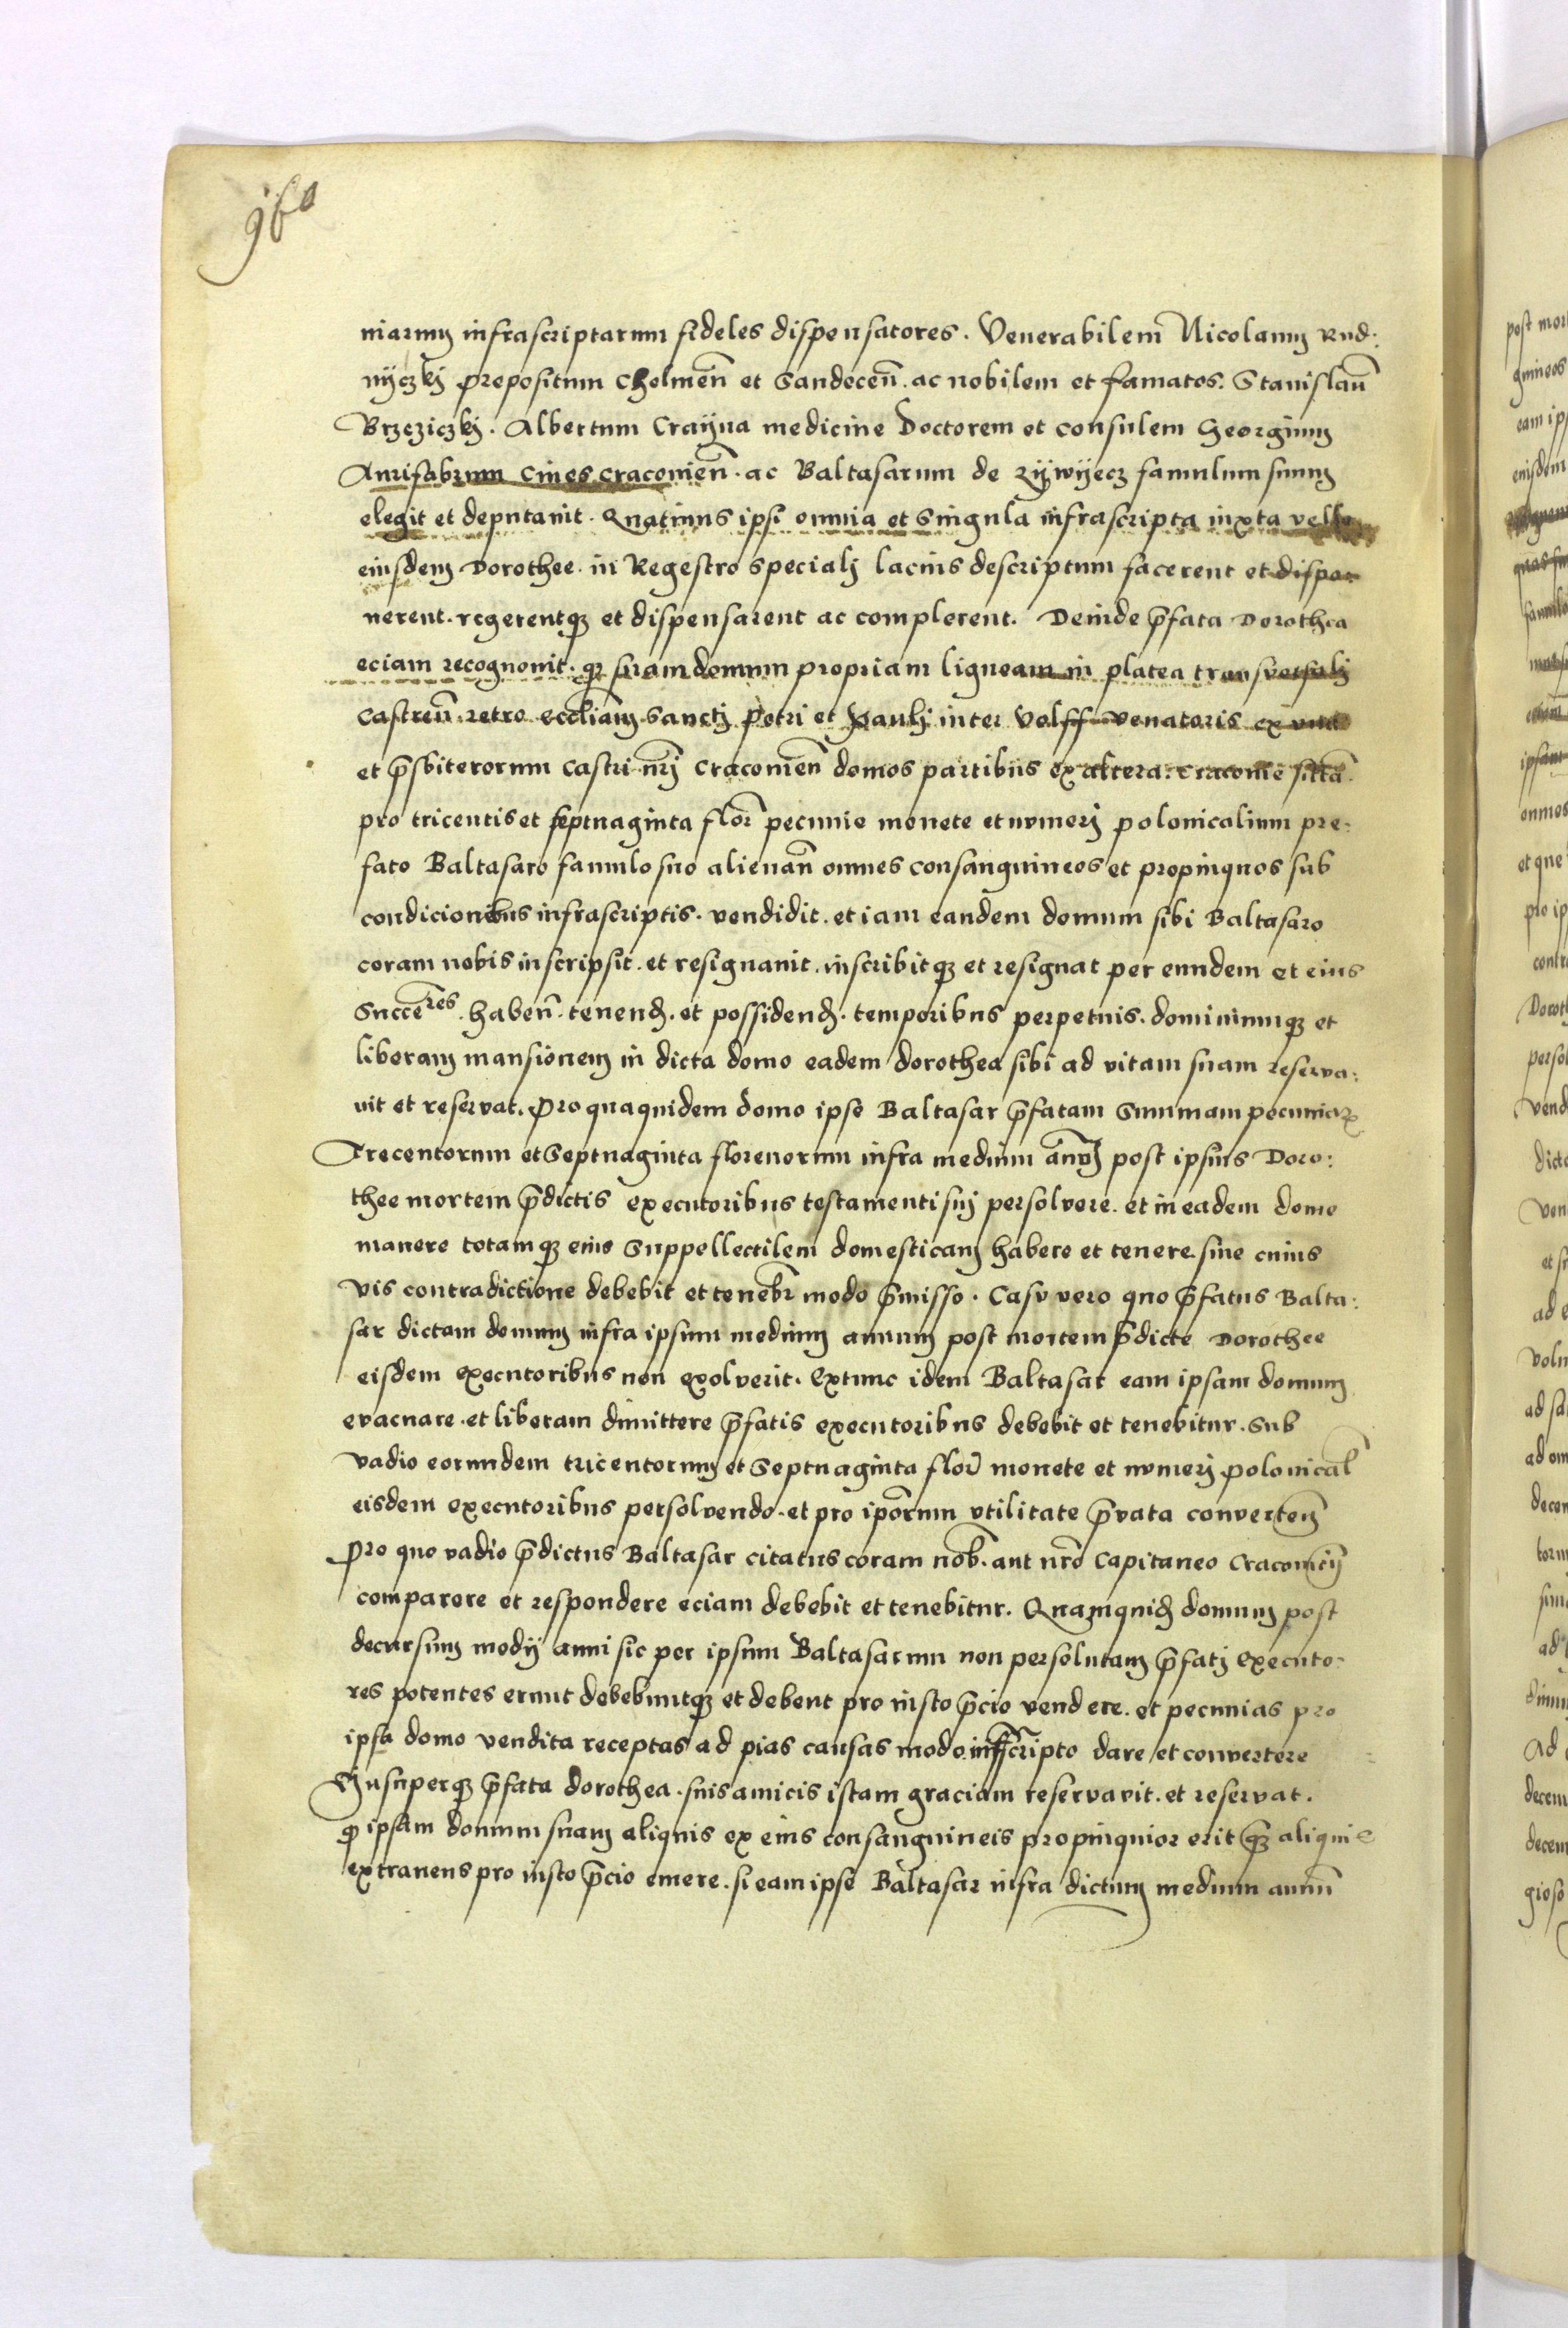 960
niarum infrascriptarum fideles dispensatores. Venerabilem Nicolaum Rud:
nyczkj prepositum Chelmeñ et Sandeceñ. ac nobilem et famatos. Stanislaũ
Brzeziczkj. Albertum Crayna medicine Doctorem et consulem Georgium
Aurifabrum Ciues Cracouieñ. ac Baltasarum de Zywyecz famulum suum
elegit et deputauit. Quatinus ipsi omnia et Singula infrascripta iuxta velle
eiusdem Dorothee. in Regestro specialj lacius descriptum facerent et dispo:
nerent. regerentqꝫ et dispensarent ac complerent. Deinde p̄fata Dorothea
eciam recognouit. qꝫ suam domum propriam ligneam in platea transversalj
Castreñ. retro eccl̄iam Sanctj Petri et Paulj inter Volff venatoris ex vna
et p̄sbiterorum Castri nr̄j Cracouieñ domos partibus ex altera. Cracouie sitã.
pro tricentis et septuaginta flor̃ pecunie monete et numerj polonicalium pre:
fato Baltasaro famulo suo alienañ omnes consanguineos et propinquos sub
condicionibus infrascriptis. vendidit. et iam eandem domum sibi Baltasaro
coram nobis inscripsit. et resignauit. inscribitqꝫ et resignat per eundem et eius
Succeres. habeñ. tenend̄. et possidend̄. temporibus perpetuis. dominiumqꝫ et
liberam mansionem in dicta domo eadem dorothea sibi ad vitam suam reserva:
uit et reservat. Pro quaquidem domo ipse Baltasar p̄fatam Summam pecuniaꝝ
Trecentorum et Septuaginta florenorum infra medium annj post ipsius Doro:
thee mortem p̄dictis executoribus testamenti suj persolvere. et in eadem domo
manere totamqꝫ eius Suppellectilem domesticam habere et tenere. sine cuius
vis contradictione debebit et tenebr̄ modo p̄misso. Casu vero quo p̄fatus Balta:
sar dictam domum infra ipsum medium annum post mortem p̄dicte Dorothee
eisdem executoribus non exolverit. Extunc idem Baltasar eam ipsam domum
evacuare. et liberam dimittere p̄fatis executoribus debebit et tenebitur. Sub
vadio eorundem tricentorum et Septuaginta flor̃ monete et numerj polonical̄
eisdem executoribus persolvendo. et pro ipōrum vtilitate p̄vata convertem̄
Pro quo vadio p̄dictus Baltasar citatus coram nob̄. aut nrō Capitaneo Cracouieñ
comparere et respondere eciam debebit et tenebitur. Quamquid̄ domum post
decursum medij anni sic per ipsum Baltasarum non persolutam p̄fatj executo:
res potentes erunt debebuntqꝫ et debent pro iusto p̄cio vendere. et pecunias pro
ipsa domo vendita receptas ad pias causas modo infrascripto dare et convertere
Insuperqꝫ p̄fata dorothea. suis amicis istam graciam reservavit. et reservat.
qꝫ ipsam domum suam aliquis ex eius consanguineis propinquior erit qꝫ aliquis
extraneus pro iusto p̄cio emere. si eam ipse Baltasar infra dictum medium annũ